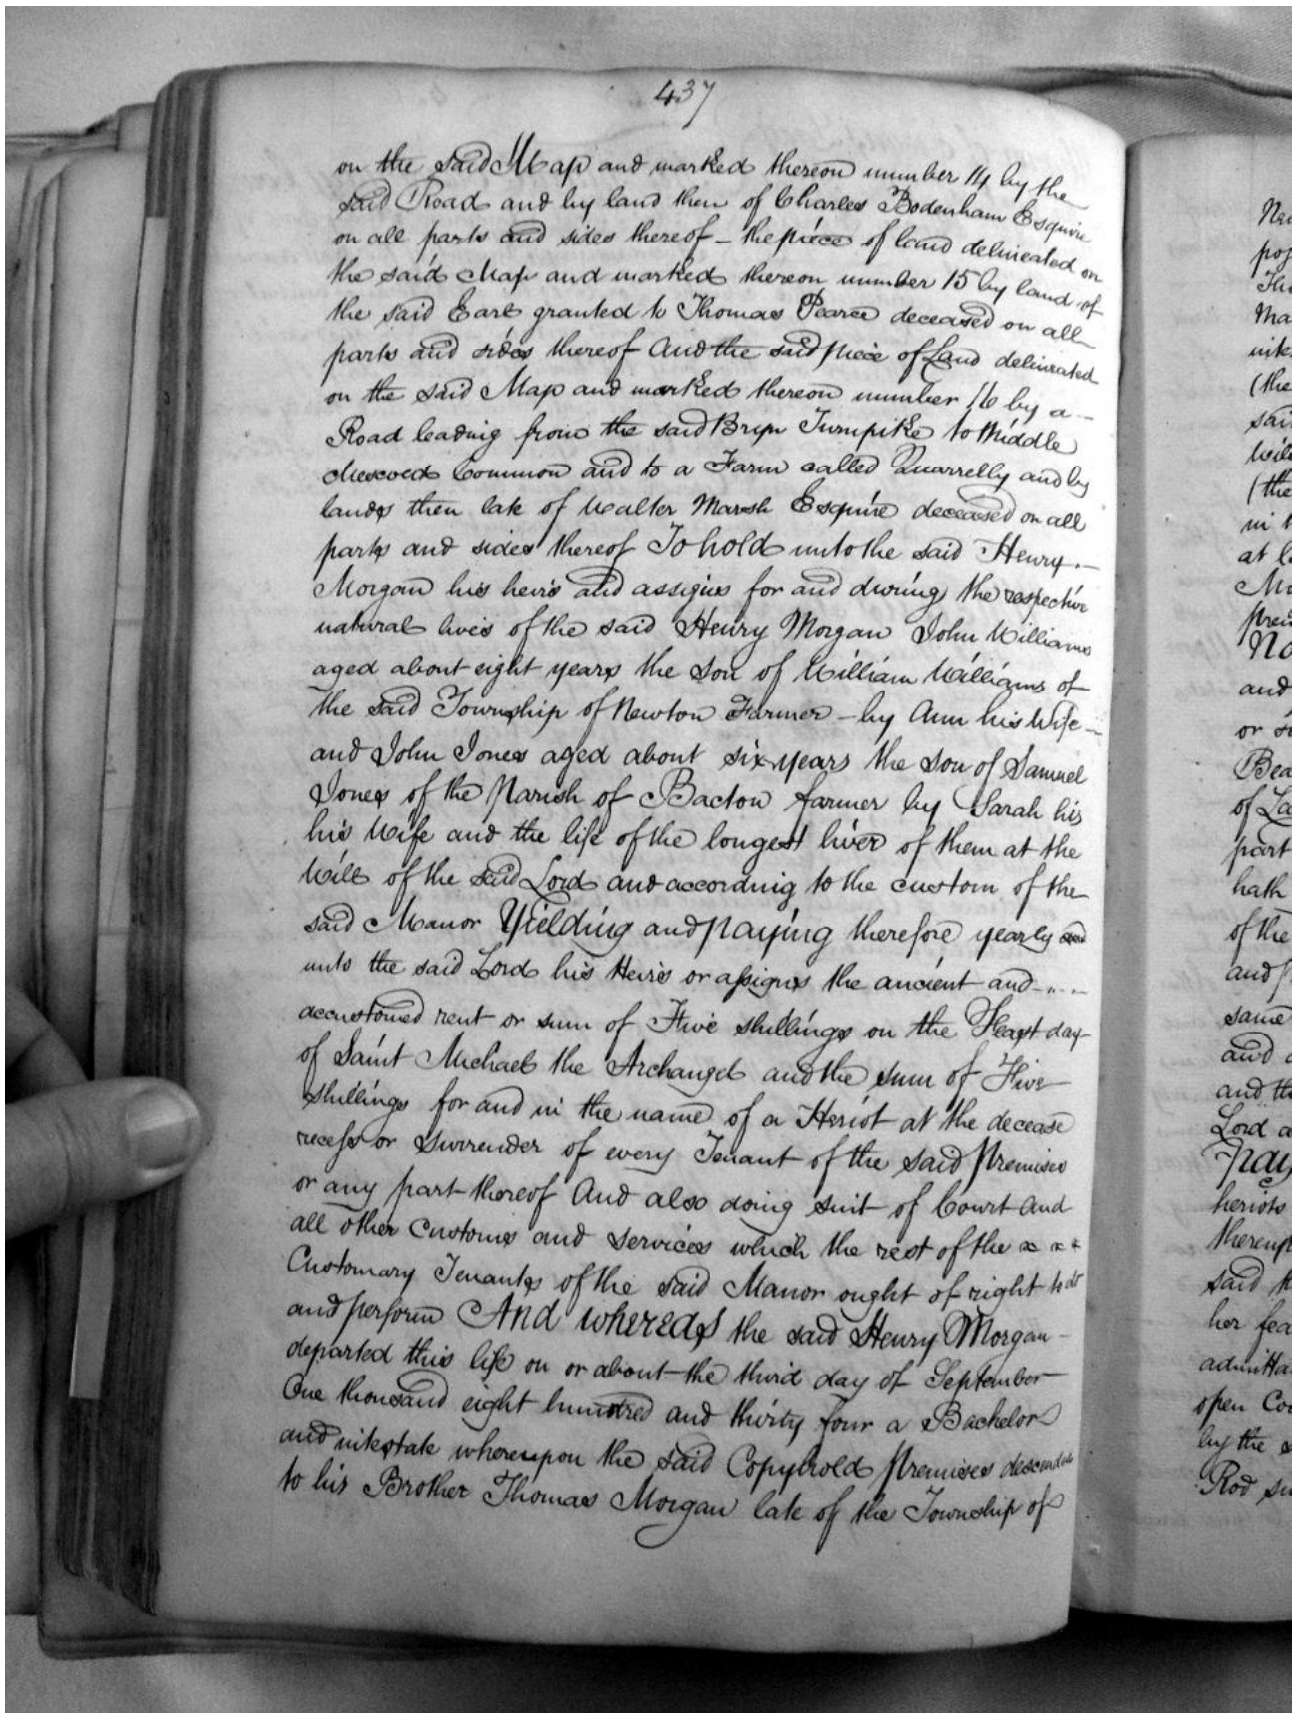 437
on the said Map and marked thereon number 14 by the
said Road and by land then of Charles Bodenham Esquire
on all parts and sides thereof – the piece of land delineated on
the said Map and marked thereon number 15 by land of
the said Earl granted to Thomas Pearce deceased on all
parts and sides thereof And the said piece of Land delineated
on the said Map and marked thereon number 16 by a –
Road leading from the said Bryn Turnpike to Middle
Mescoed Common and to a Farm called Quarrelly and by
lands then late of Walter Marsh Esquire deceased on all
parts and sides thereof To hold unto the said Henry –
Morgan his heirs and assigns for and during the respective
natural lives of the said Henry Morgan John Williams
aged about eight years the son of William Williams of
the said Township of Newton Farmer – by Ann his Wife –
and John Jones aged about six years the son of Samuel
Jones of the Parish of Bacton farmer by Sarah his
his Wife and the life of the longest liver of them at the
Will of the said Lord and according to the custom of the
said Manor Yielding and paying therefore yearly and
unto the said Lord his Heirs or assigns the ancient and – –
accustomed rent or sum of Five shillings on the Feast day
of Saint Michael the Archangel and the sum of Five
shillings for and in the name of a Heriot at the decease
recess or surrender of every Tenant of the said Premises
or any part thereof And also doing suit of Court and
all other Customs and services which the rest of the x x x
Customary Tenants of the said Manor ought of right to do
and perform And whereas the said Henry Morgan –
departed this life on or about the third day of September
One thousand eight hundred and thirty four a Bachelor
and intestate whereupon the said Copyhold Premises descended
to his Brother Thomas Morgan late of the Township of
and
or
of
part
hath
of the
and
same
and
and
Lord
heriots
said
her
open
by the
Rod